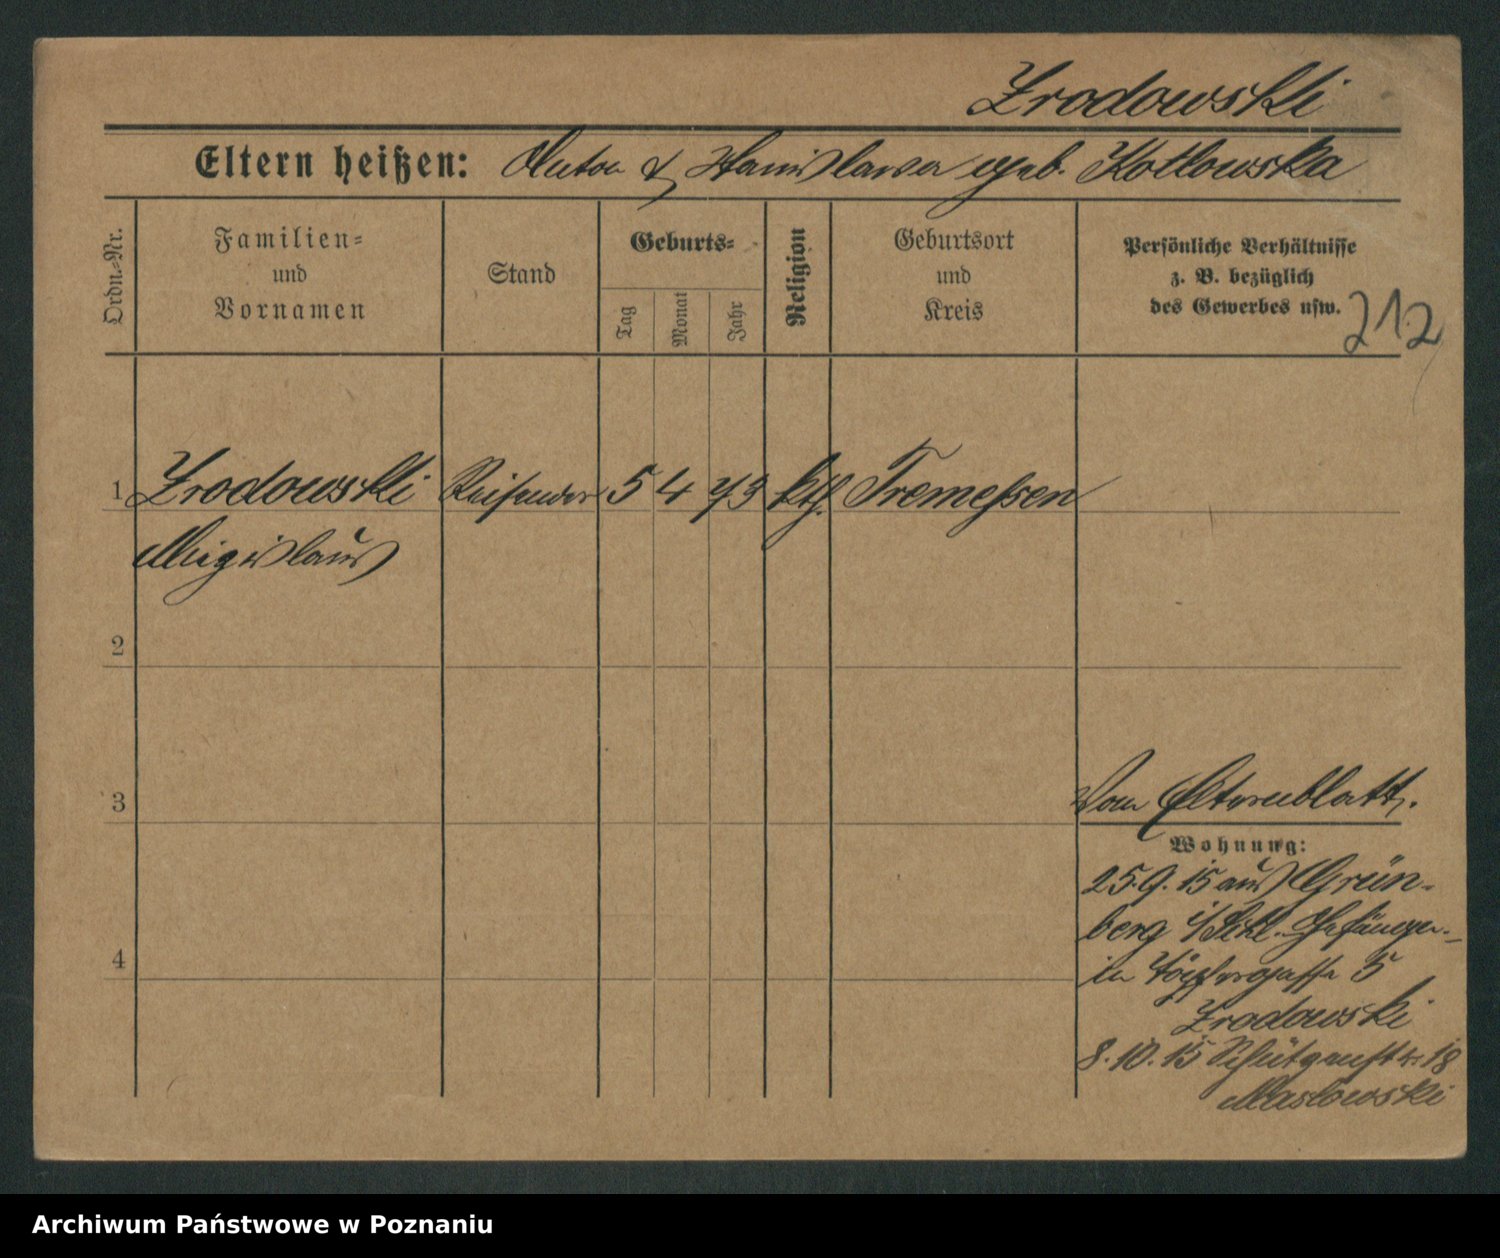 Zrodowski
Eltern heißen: Anton & Stanislawa geb. Kotlowska
Ordn.-Nr.
Familien-
und
Vornamen
Stand
Geburts-
Tag
Monat
Jahr
Religion
Geburtsort
und
Kreis
Persönliche Verhältnisse
z. B. bezüglich
des Gewerbes usw.
212
1 Zrodowski Reisender 5 4 73 kth. Tremessen
Miezislaus
2
3
Vom Elternblatt.
Wohnung:
25.9.15 aus Grün-
berg i/Schl.
4
in Töpfergasse 5
Zrodowski
8.10.15 Schützenstr. 18
Maslowski
Archiwum Państwowe w Poznaniu